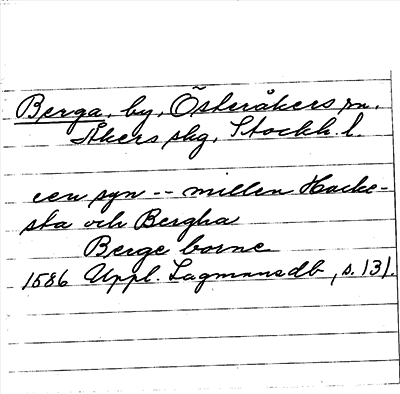 Berga, by, Österåkers sn.
Åkers skg, Stockh. l.
een syn -- millen Hacke-
sta och Bergha
Berge borne
1586 Uppl. Lagmansdb, s. 131.